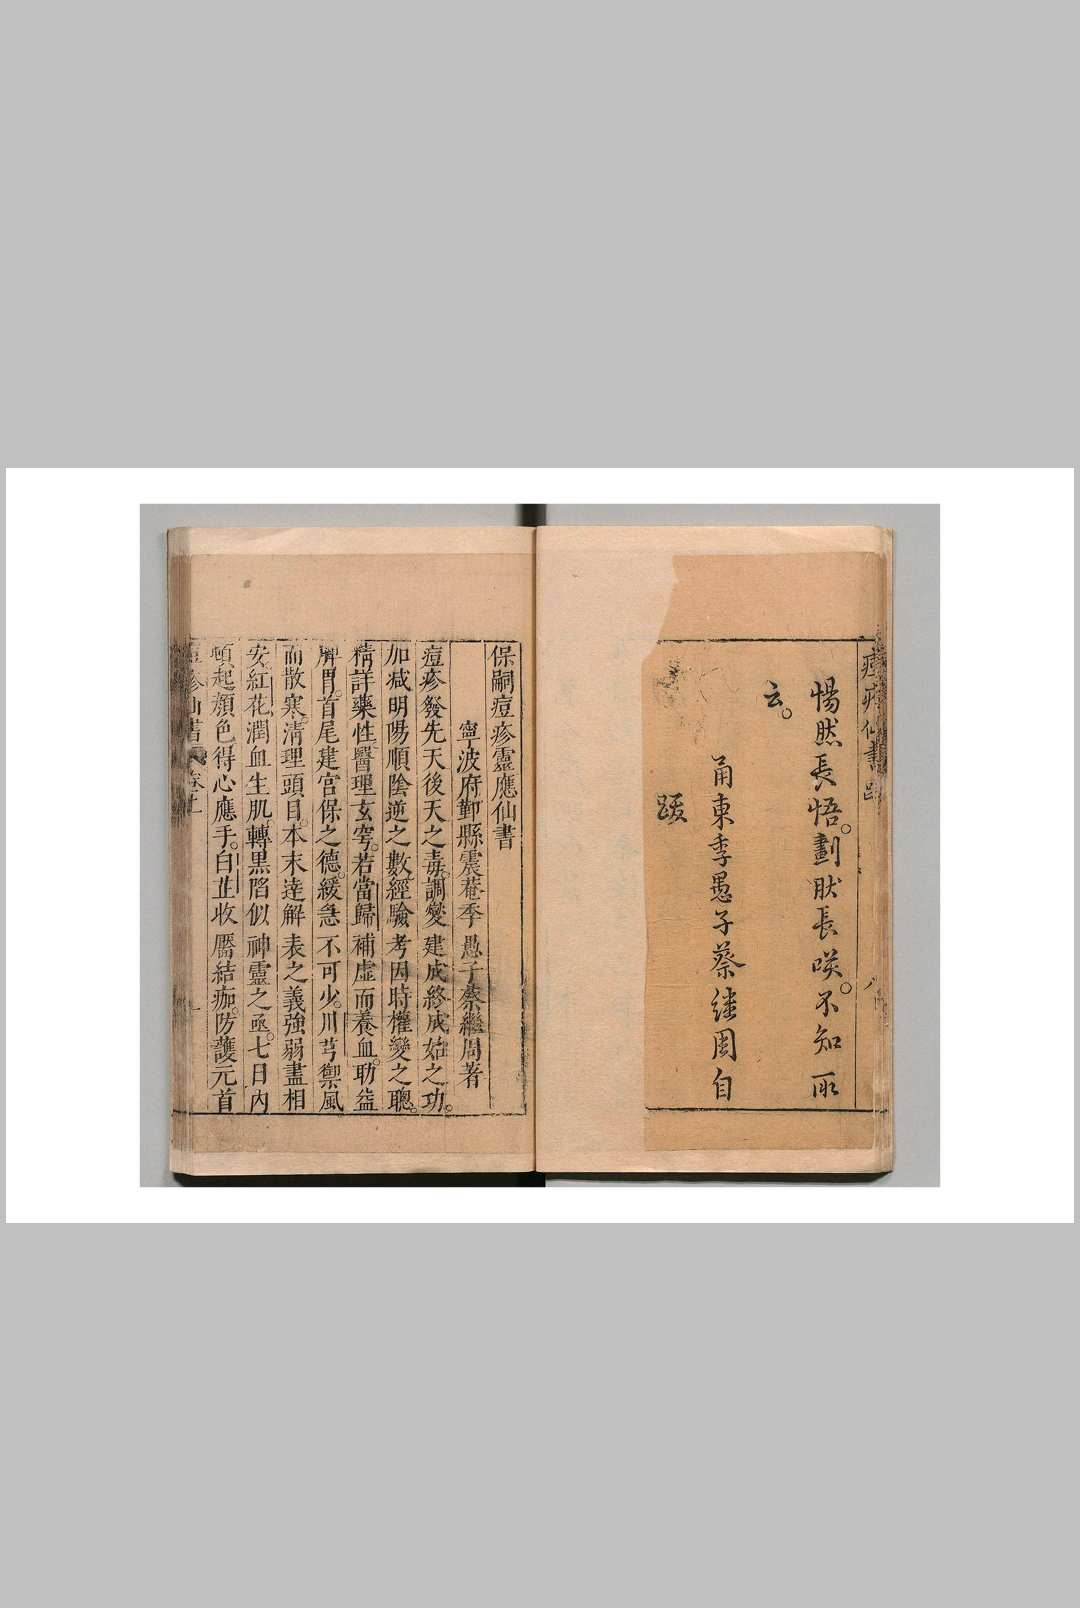 痘疹仙書 跋 八
惕然長悟。劃肰長咲。不知所
云。
甬東季愚子蔡繼周自
跋
保嗣痘疹靈應仙書
寧波府鄞縣震菴季愚子蔡繼周著
痘疹發先天後天之毒。調變建成終成始之功。
加减明陽順陰逆之數。經驗考因時權變之聰。
精詳藥性。醫理玄穹。若當歸補虛而養血。助益
脾胃。首尾建宫保之德。緩急不可少。川芎禦風
而散寒。清理頭目。本末逹解表之義。強弱盡相
安。紅花潤血生肌。轉黑陷似神靈之亟。七日内
頓起顔色得心應手。白芷收靨結痂。防護元首
痘疹仙書 卷上 一